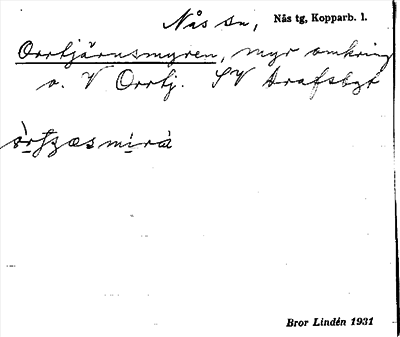 Nås sn, Nås tg, Kopparb. l.
Orrtjärnsmyren, myr omkring
o. V Orrtj. SV
Bror Lindén 1931